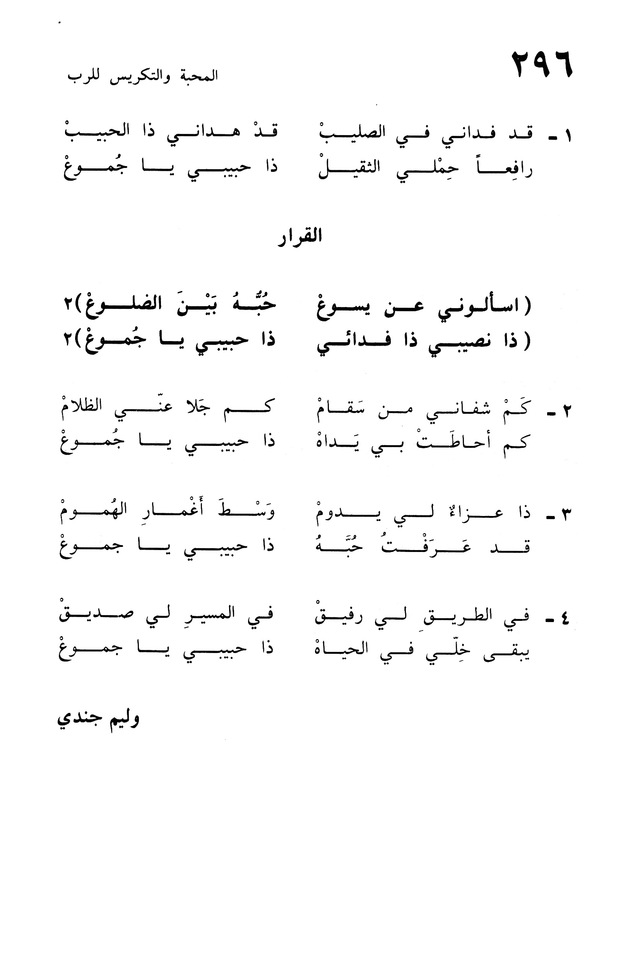 ٢٩٦
المحبة والتكريس للرب
١ ـ قد فداني في الصليبْ قدْ هداني ذا الحبيبْ
رافِعاً حِمْلي الثقيلْ ذا حبيبي يا جُموعْ
القرار
( اسألوني عن يسوعْ حُبُّهُ بَيْنَ الضلوعْ)٢
( ذا نصيبي ذا فدائي ذا حبيبي يا جُموعْ)٢
٢ ـ كَمْ شفاني من سَقامْ كم جَلا عنّي الظلامْ
كم أحاطَتْ بي يَداهْ ذا حبيبي يا جُموعْ
٣ ـ ذا عزاءٌ لي يدومْ وَسْطَ أغْمارِ الهُمومْ
قد عَرَفْتُ حُبَّهُ ذا حبيبي يا جموعْ
٤ ـ في الطريقِ لي رفيقْ في المسيرِ لي صديقْ
يبقى خِلّي في الحياهْ ذا حبيبي يا جموعْ
وليم جندي